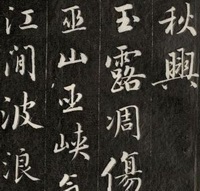 秋興
玉露凋傷
巫山巫峽
江間波浪